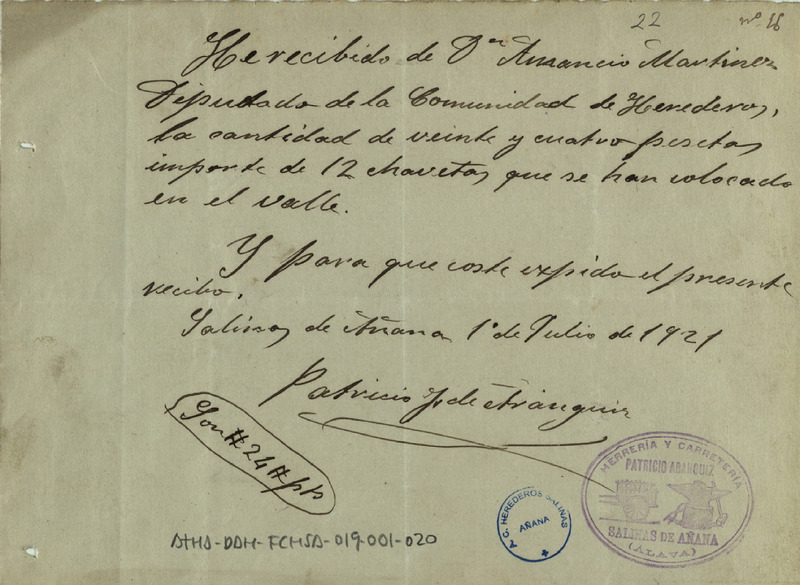 22
nº 16
He recibido de Dⁿ Amancio Martinez
Diputado de la Comunidad de Herederos,
la cantidad de veinte y cuatro pesetas
importe de 12 chavetas que se han colocado
en el valle.
Y para que coste expido el presente
recibo.
Salinas de Añana 1º de Julio de 1921
Patricio de Aranguiz
Son # 24 # pts
HERRERÍA Y CARRETERÍA
PATRICIO ARANGUIZ
SALINAS DE AÑANA
(ÁLAVA)
A. C. HEREDEROS SALINAS
AÑANA
ATHA-DAH-FCHSA-019-001-020